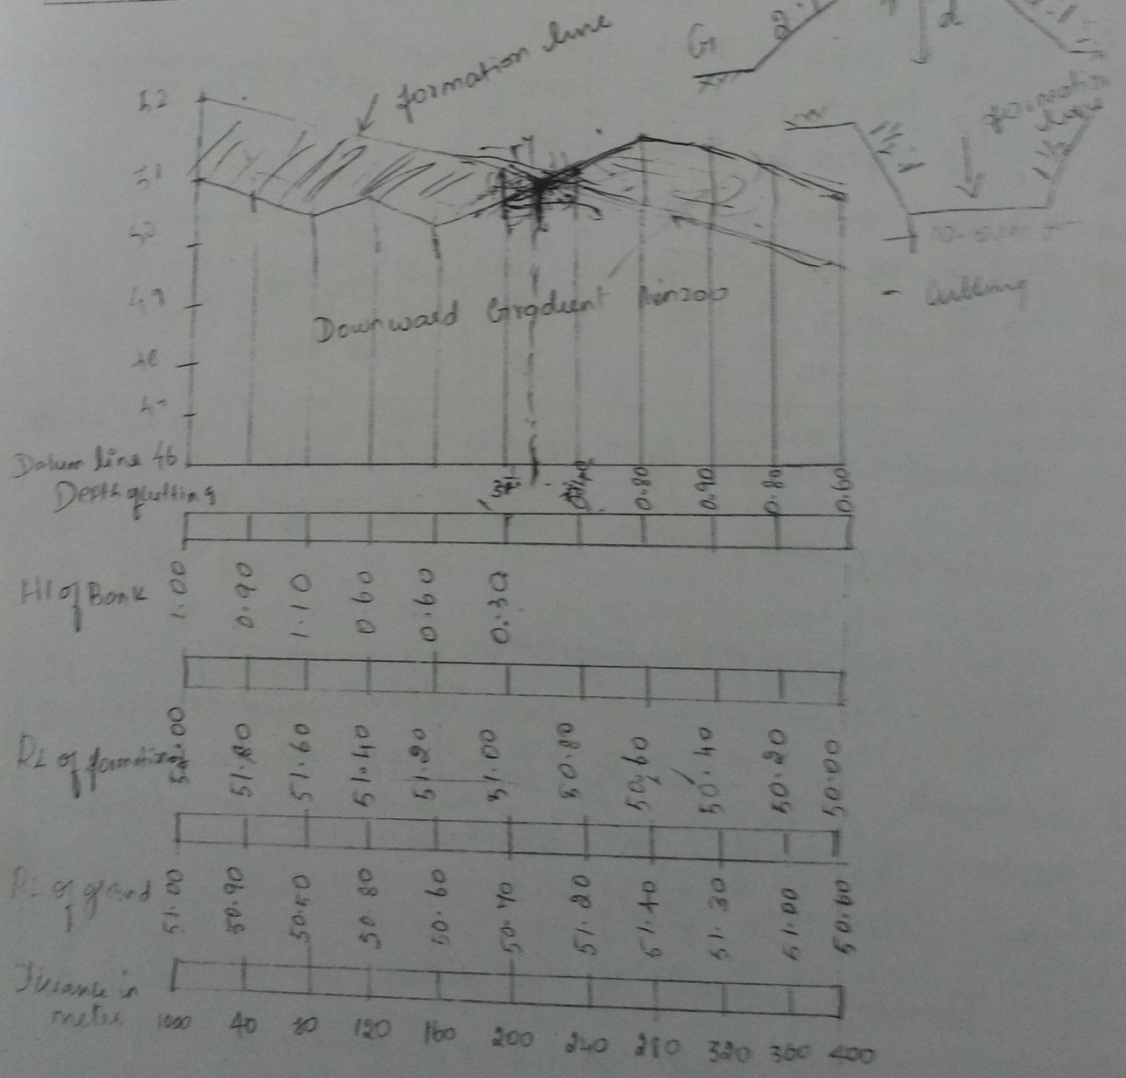 formation line
G
2
d
52
51
50
49
48
47
formation line
- Cutting
Downward Gradient 1 in 200
Datum line 46
Depth of cutting 0.80 0.90 0.80 0.60
Ht of Bank 1.00 0.90 1.10 0.60 0.60 0.30
RL of formation 52.00 51.80 51.60 51.40 51.20 51.00 50.80 50.60 50.40 50.20 50.00
RL of ground 51.00 50.90 50.50 50.80 50.60 50.70 51.20 51.40 51.30 51.00 50.60
Distance in
metre 40 80 120 160 200 240 280 320 360 400